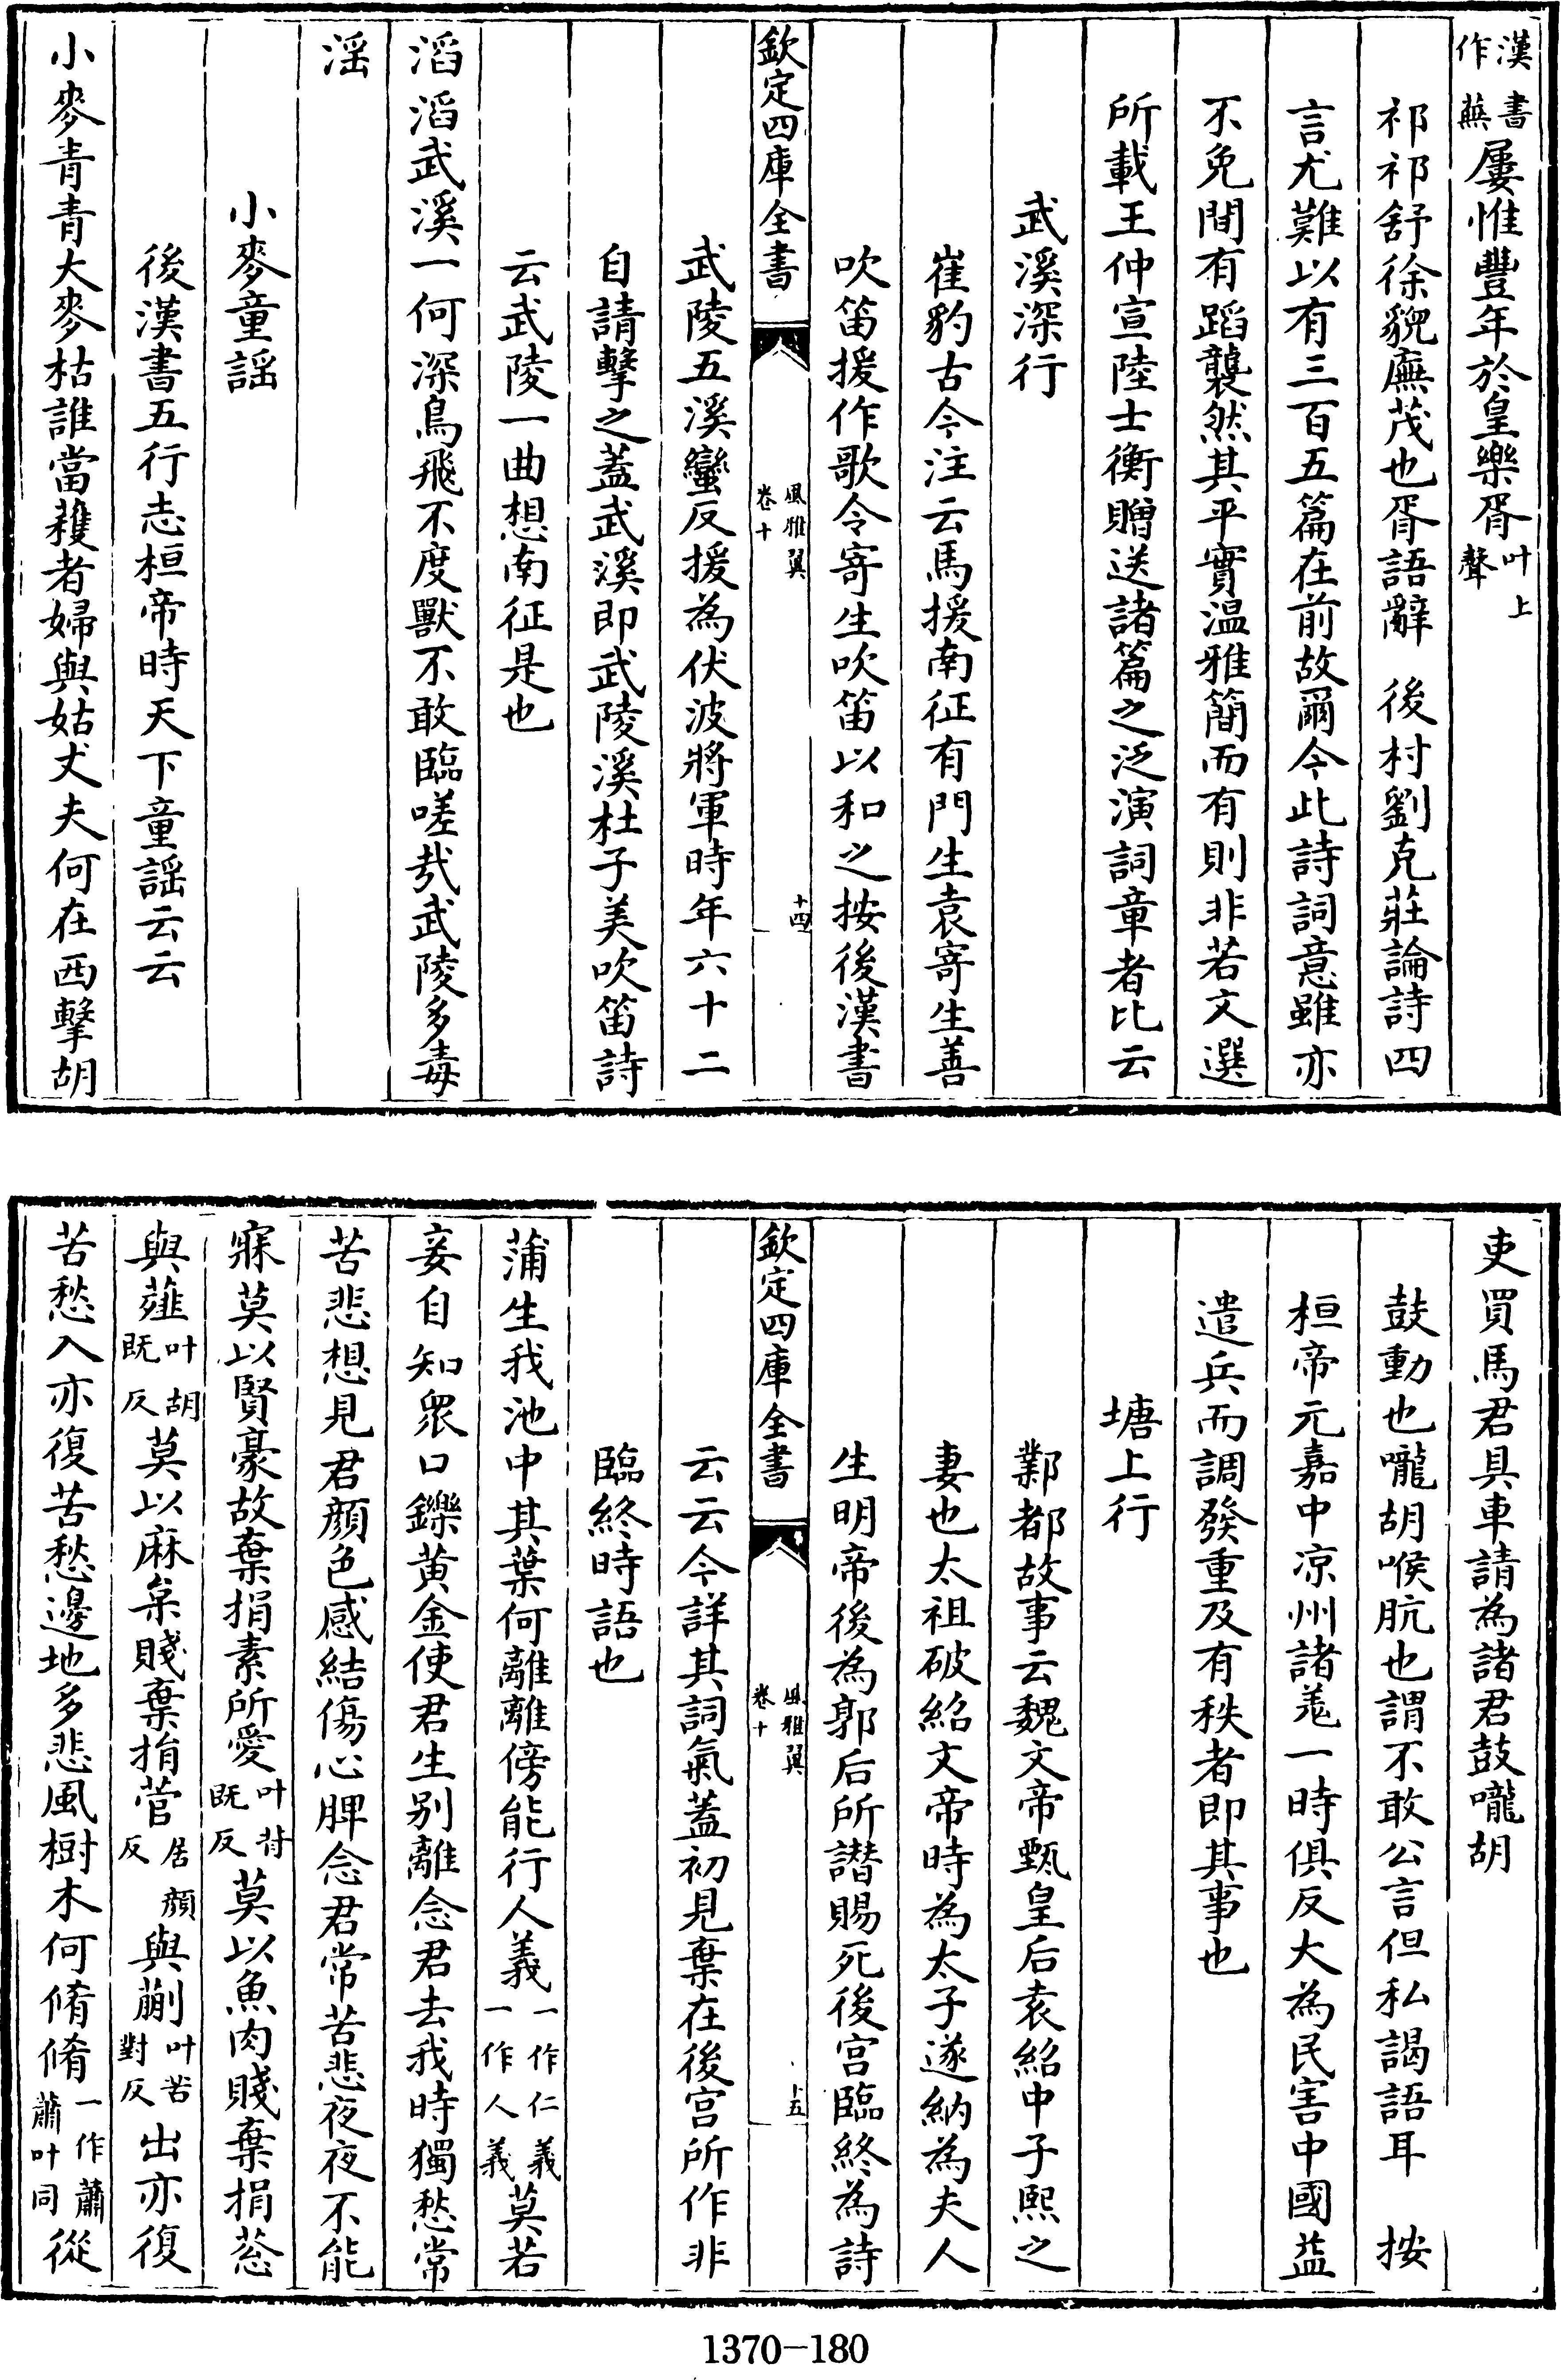 漢書作蕪屢惟豐年於皇樂胥叶上聲
祁祁舒徐貌廡茂也胥語辭　後村劉克莊論詩四
言尤難以有三百五篇在前故爾今此詩詞意雖亦
不免間有蹈襲然其平實温雅簡而有則非若文選
所載王仲宣陸士衡贈送諸篇之泛演詞章者比云
武溪深行
崔豹古今注云馬援南征有門生袁寄生善
吹笛援作歌令寄生吹笛以和之按後漢書
欽定四庫全書　風雅翼卷十　十四
武陵五溪蠻反援為伏波將軍時年六十二
自請擊之蓋武溪即武陵溪杜子美吹笛詩
云武陵一曲想南征是也
滔滔武溪一何深鳥飛不度獸不敢臨嗟哉武陵多毒
淫
小麥童謡
後漢書五行志桓帝時天下童謡云云
小麥青青大麥枯誰當穫者婦與姑丈夫何在西擊胡
吏買馬君具車請為諸君鼓嚨胡
鼓動也嚨胡喉肮也謂不敢公言但私謁語耳　按
桓帝元嘉中凉州諸羌一時俱反大為民害中國益
遣兵而調發重及有秩者即其事也
塘上行
鄴都故事云魏文帝甄皇后袁紹中子熙之
妻也太祖破紹文帝時為太子遂納為夫人
生明帝後為郭后所譖賜死後宫臨終為詩
欽定四庫全書　風雅翼卷十　十五
云云今詳其詞氣蓋初見棄在後宫所作非
臨終時語也
蒲生我池中其葉何離離傍能行人義一作仁義一作人義莫若
妾自知衆口鑠黄金使君生别離念君去我時獨愁常
苦悲想見君顔色感結傷心脾念君常苦悲夜夜不能
寐莫以賢豪故棄捐素所愛叶許既反莫以魚肉賤棄捐葱
與薤叶胡既反莫以麻枲賤棄捐菅居顔反與蒯叶苦對反出亦復
苦愁入亦復苦愁邊地多悲風樹木何脩脩一作蕭蕭叶同從
1370-180